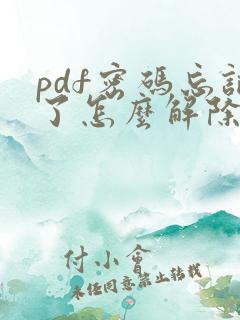 pdf密碼忘記
了怎麼解除
付小會
未經同意禁止轉載